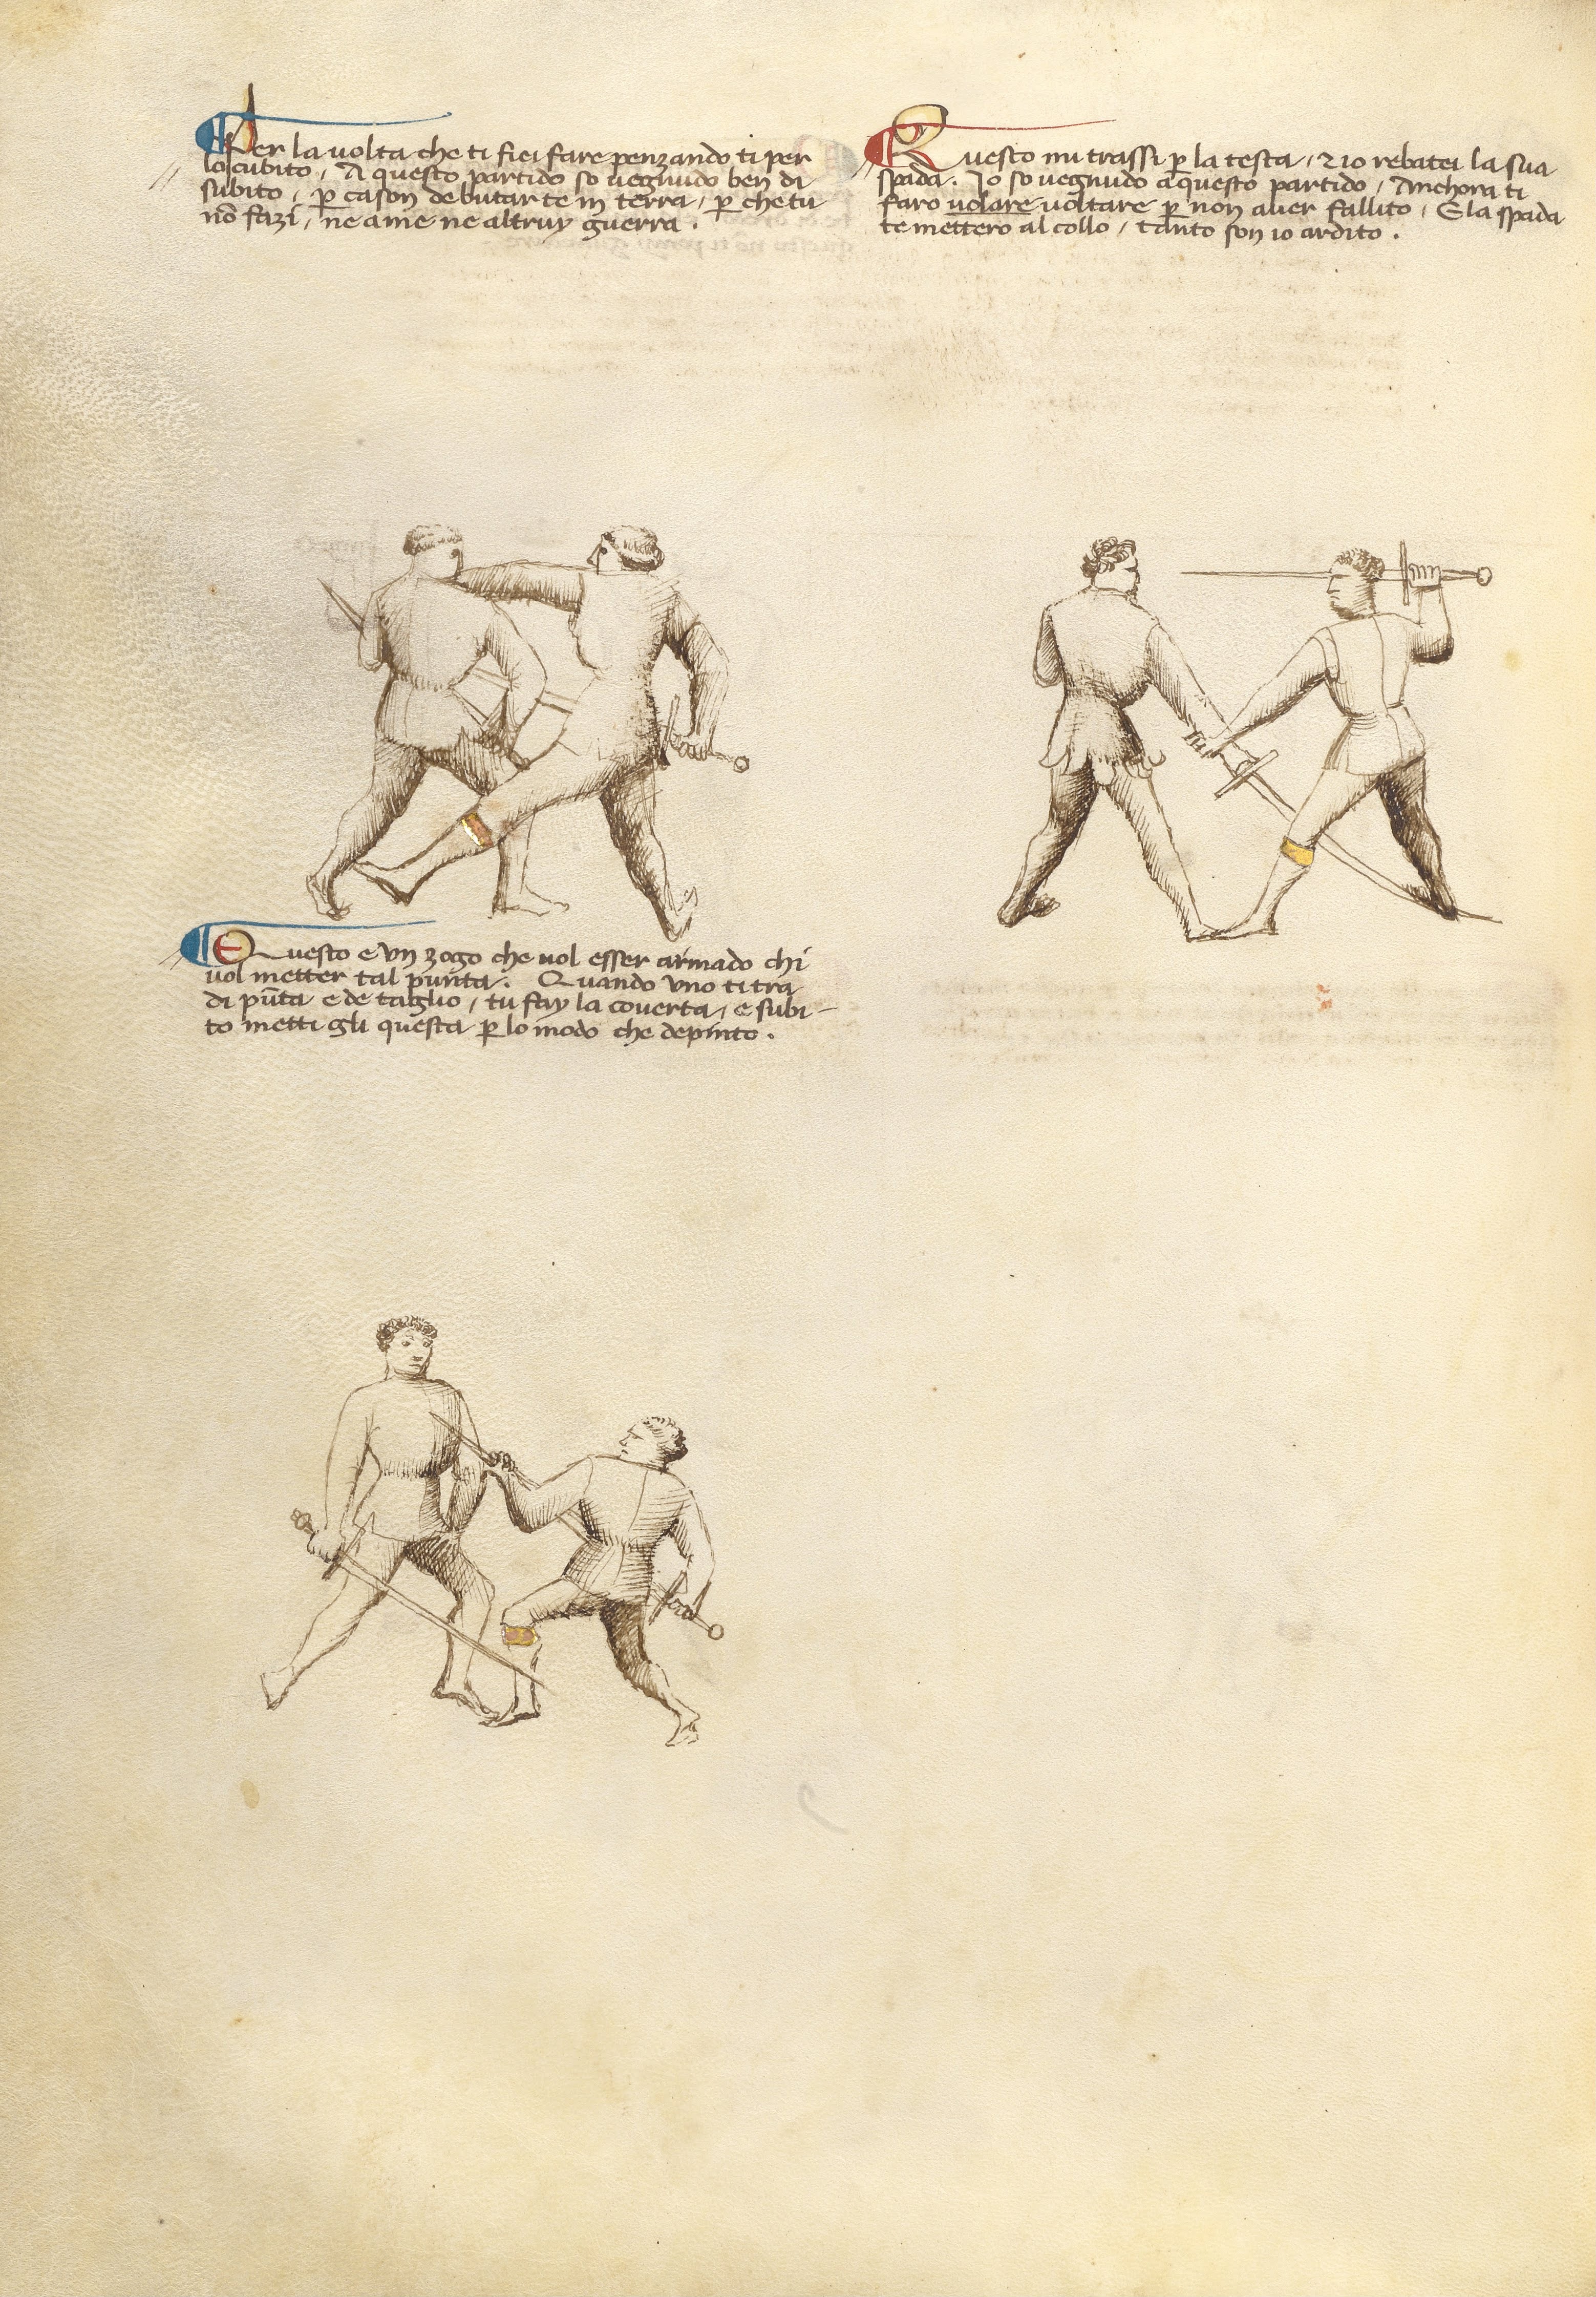 Per la volta che ti fiei fare penzando ti per
lo cubito, A questo partido so vegnudo ben di
subito, p cason de butarte in terra, p che tu
nō fazi, ne a me ne altruy guerra.
Questo mi trassi p la testa, 2 io rebatei la sua
spada. Io so vegnudo a questo partido, Anchora ti
faro volare voltare p non aver fallito, E la spada
te mettero al collo, tanto son io ardito.
Questo e un zogo che vol esser armado chi
vol metter tal punta. Quando uno ti tra
di pūta e de taglio, tu fay la coverta, e subi-
to metti gli questa p lo modo che depinto.